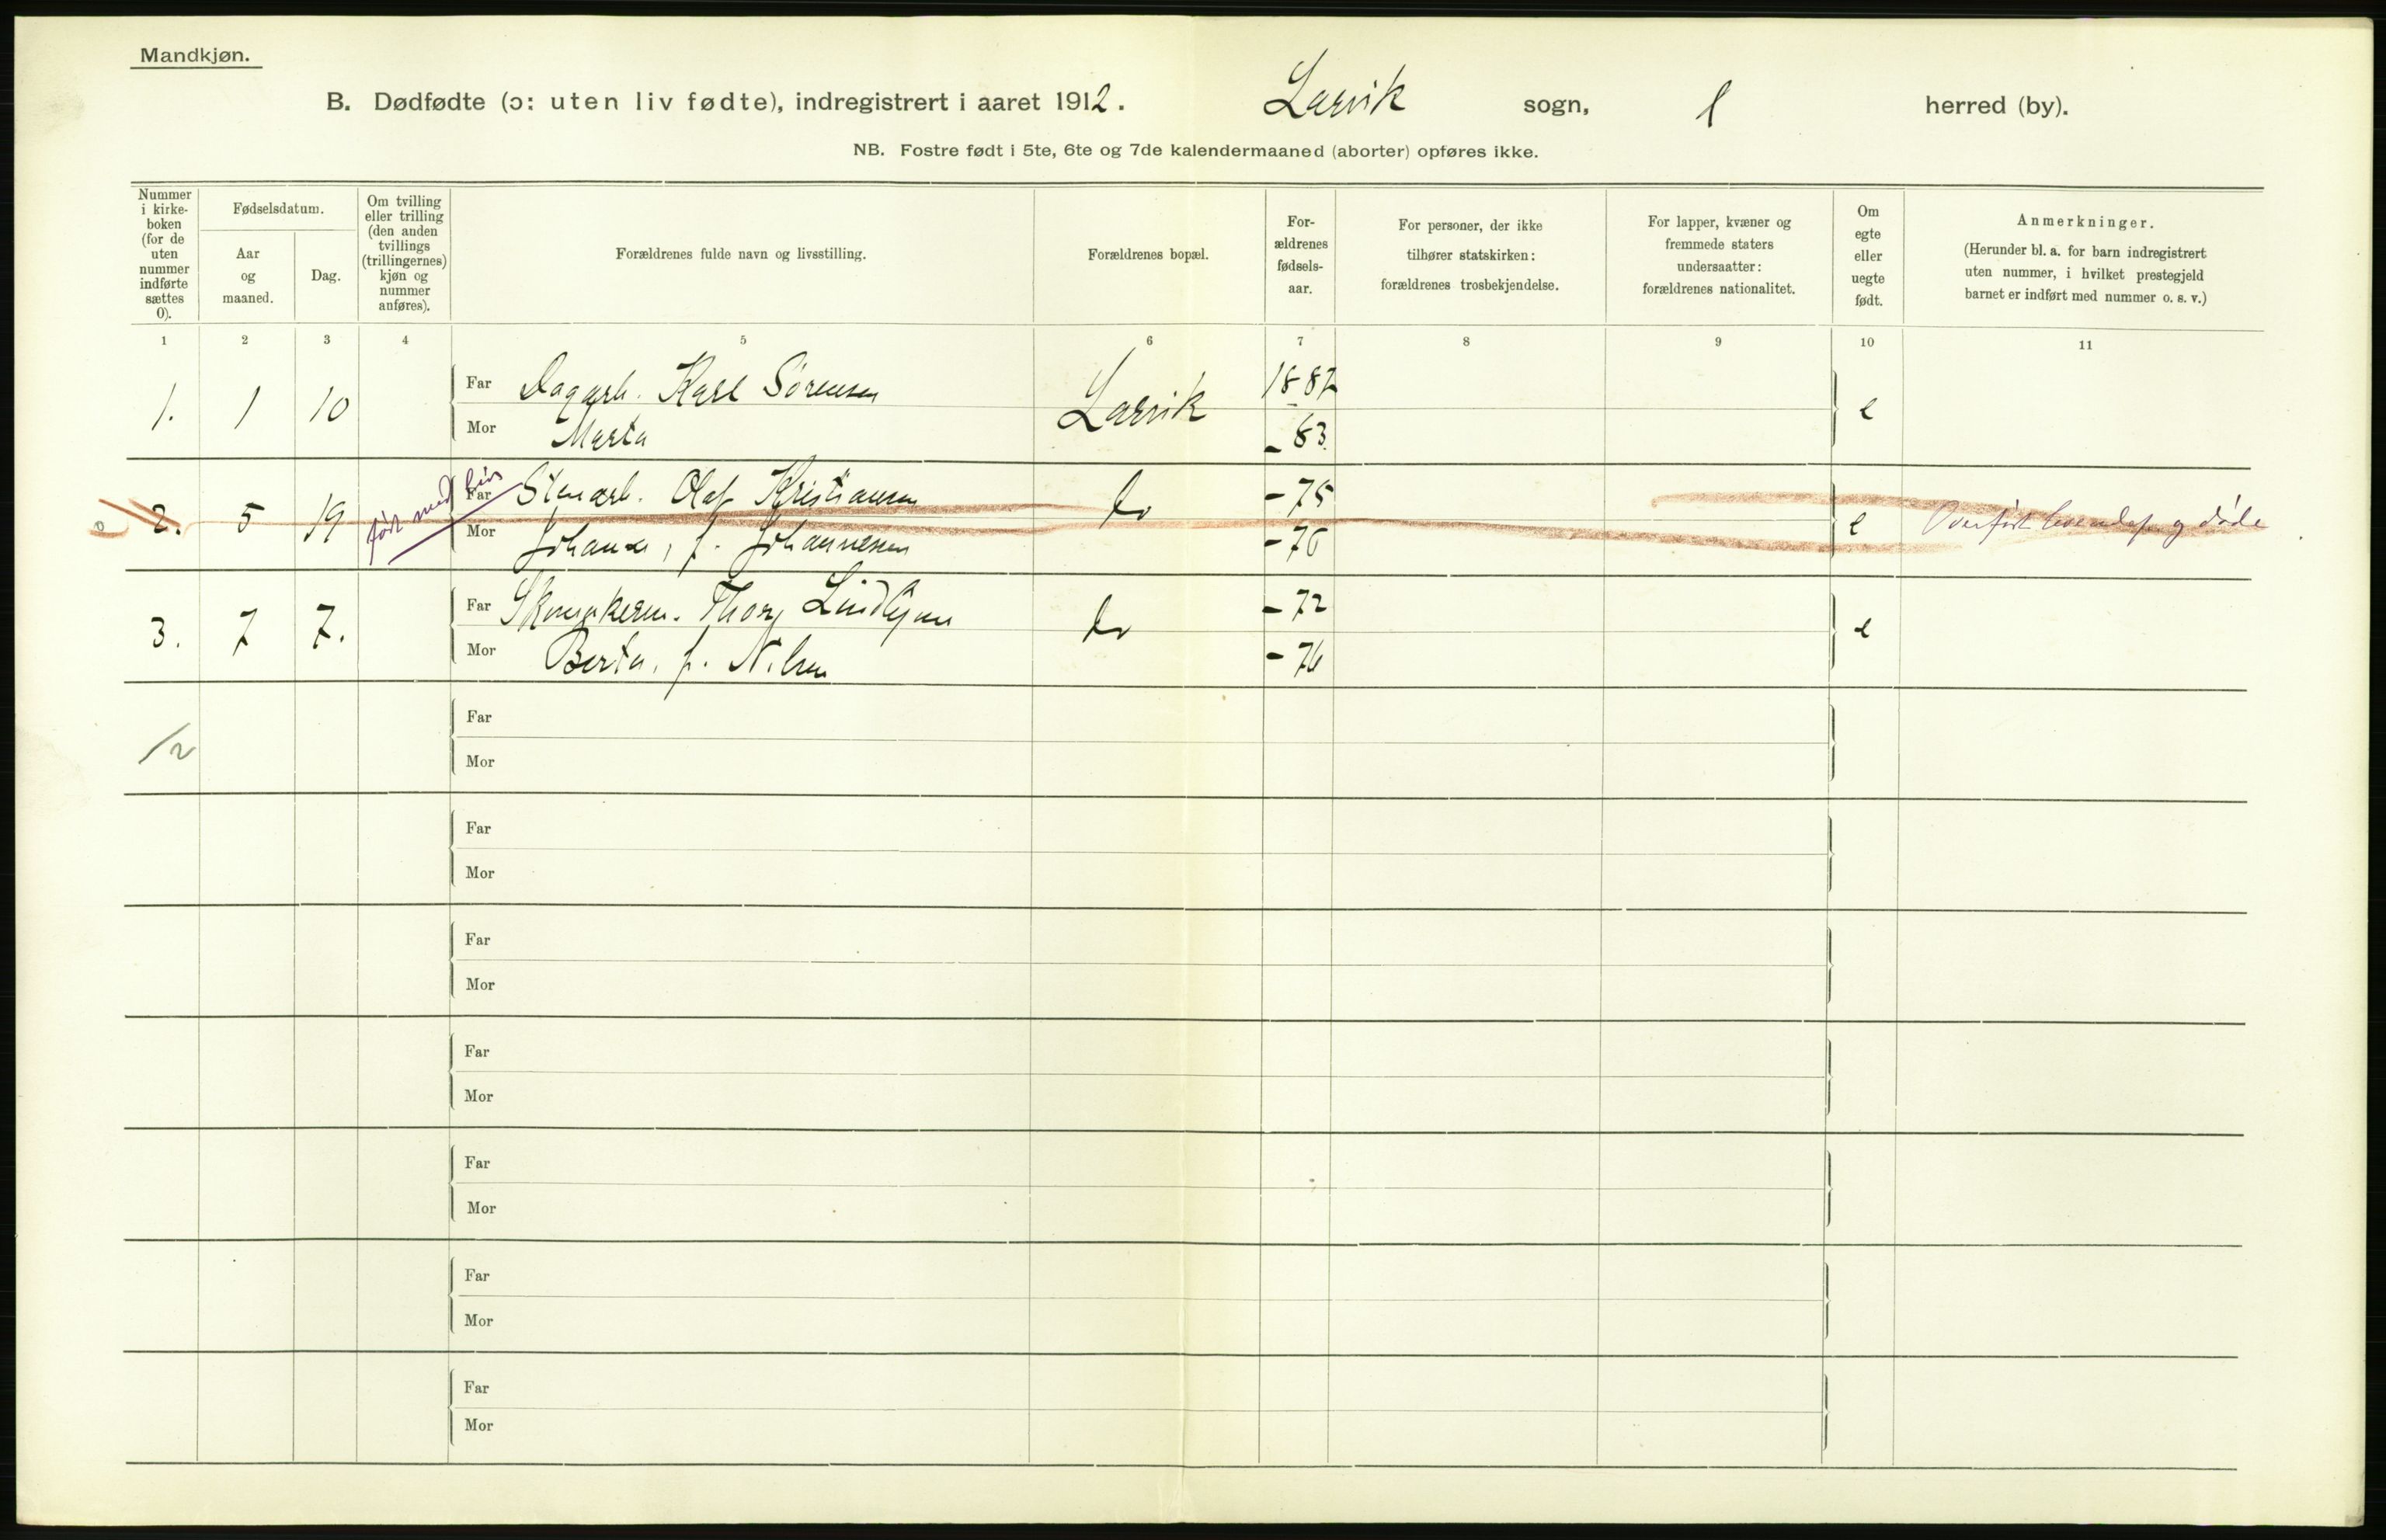 Mandkjøn.
B. Dødfødte (ɔ: uten liv fødte), indregistrert i aaret 1912. Larvik sogn, herred (by).
NB. Fostre født i 5te, 6te og 7de kalendermaaned (aborter) opføres ikke.
Nummer
i kirke-
boken
(for de
uten
nummer
indførte
sættes
0).
Fødselsdatum.
Aar
og
maaned.
Dag.
Om tvilling
eller trilling
(den anden
tvillings
(trillingernes)
kjøn og
nummer
anføres).
Forældrenes fulde navn og livsstilling.
Forældrenes bopæl.
For-
ældrenes
fødsels-
aar.
For personer, der ikke
tilhører statskirken:
forældrenes trosbekjendelse.
For lapper, kvæner og
fremmede staters
undersaatter:
forældrenes nationalitet.
Om
egte
eller
uegte
født.
Anmerkninger.
(Herunder bl. a. for barn indregistrert
uten nummer, i hvilket prestegjeld
barnet er indført med nummer o. s. v.)
1 2 3 4 5 6 7 8 9 10 11
1. 1 10 Far Dagarb. Karl Sørensen Larvik 1887 e
Mor Marta - 83.
2. 5 19 født med liv Far Stenarb. Olaf Kristiansen do - 75 e Overført levendef. og døde
Mor Johanne, f. Johannesen - 76
3. 7 7. Far Thorv Lindtjøn do - 72 e
Mor Berta, f. Nilsen - 76
/2
Far
Mor
Far
Mor
Far
Mor
Far
Mor
Far
Mor
Far
Mor
Far
Mor